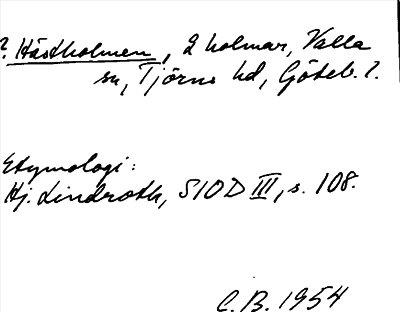 ? Hästholmen, 2 holmar, Valla
sn, Tjörns hd, Göteb. l.
Etymologi:
Hj. Lindroth, SIOD III, s. 108.
C.B. 1954